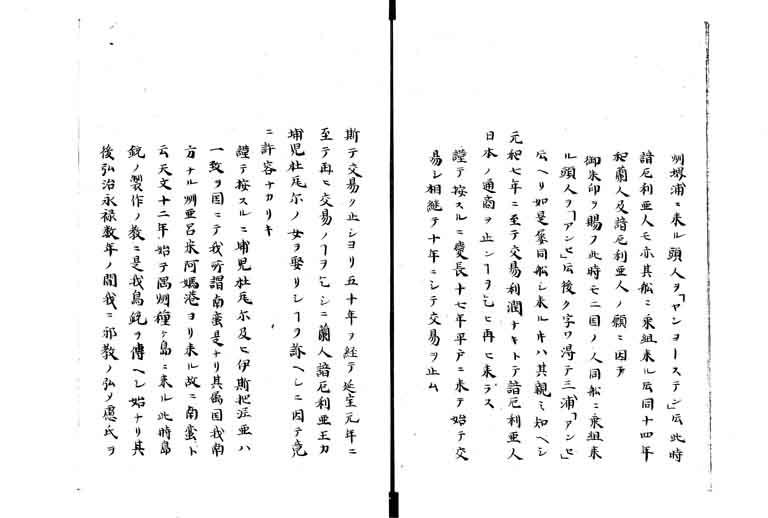 州堺浦ニ来ル頭人ヲ「ヤンヨーステン」ト云此時
諳厄利亜人モ亦其船ニ乗組来ル云同十四年
和蘭人及諳厄利亜人ノ願ニ因テ
御朱印ヲ賜フ此時モ二国ノ人同船ニ乗組来
ル頭人ヲ「アンヒ」云後ク字ワ得テ三浦「アンヒ」
云ヘリ如是屡同船シ来ルキハ其親ミ知ヘシ
元和七年ニ至テ交易利潤ナキトテ諳厄利亜人
日本ノ通商ヲ止ンヿヲ乞ヒ再ヒ来デス
謹テ按スルニ慶長十七年平戸ニ来テ始テ交
易シ相継テ十年ニシテ交易ヲ止ム
斯テ交易ク止シヨリ五十年ヲ経テ延宝元年ニ
至テ再ヒ交易ノヿヲ乞シニ蘭人諳厄利亜王カ
埔児杜瓦尔ノ女ヲ娶リシヿヲ訴ヘシニ因テ竟
ニ許容ナカリキ
謹テ按スルニ埔児杜瓦尔及ヒ伊斯把泥亜ハ
一致ヲ国ニテ我所謂南蛮是ナリ其属国我南
方ナル州亜呂宋阿媽港ヨリ来ル故ニ南蛮ト
云天文十二年始テ隅州種ヶ島ニ来ル此時鳥
銃ノ製作ノ教ニ是我鳥銃ヲ傳ヘシ始ナリ其
後弘治永禄数年ノ間我ニ邪教ノ弘メ愚氓ヲ